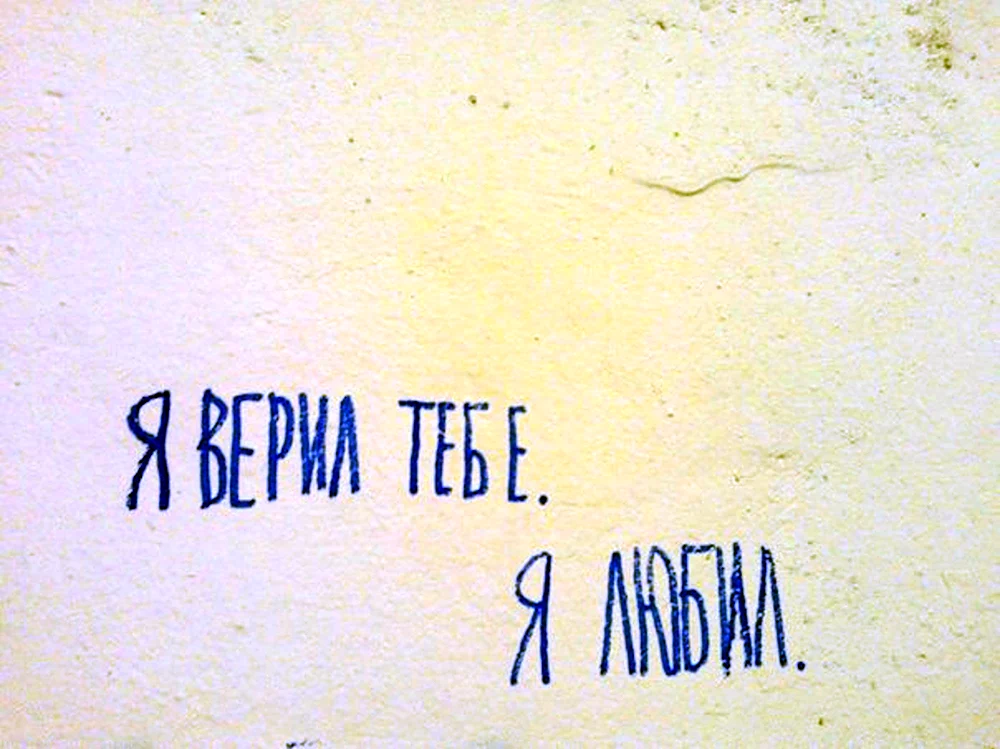 Я ВЕРИЛ ТЕБЕ.
Я ЛЮБИЛ.